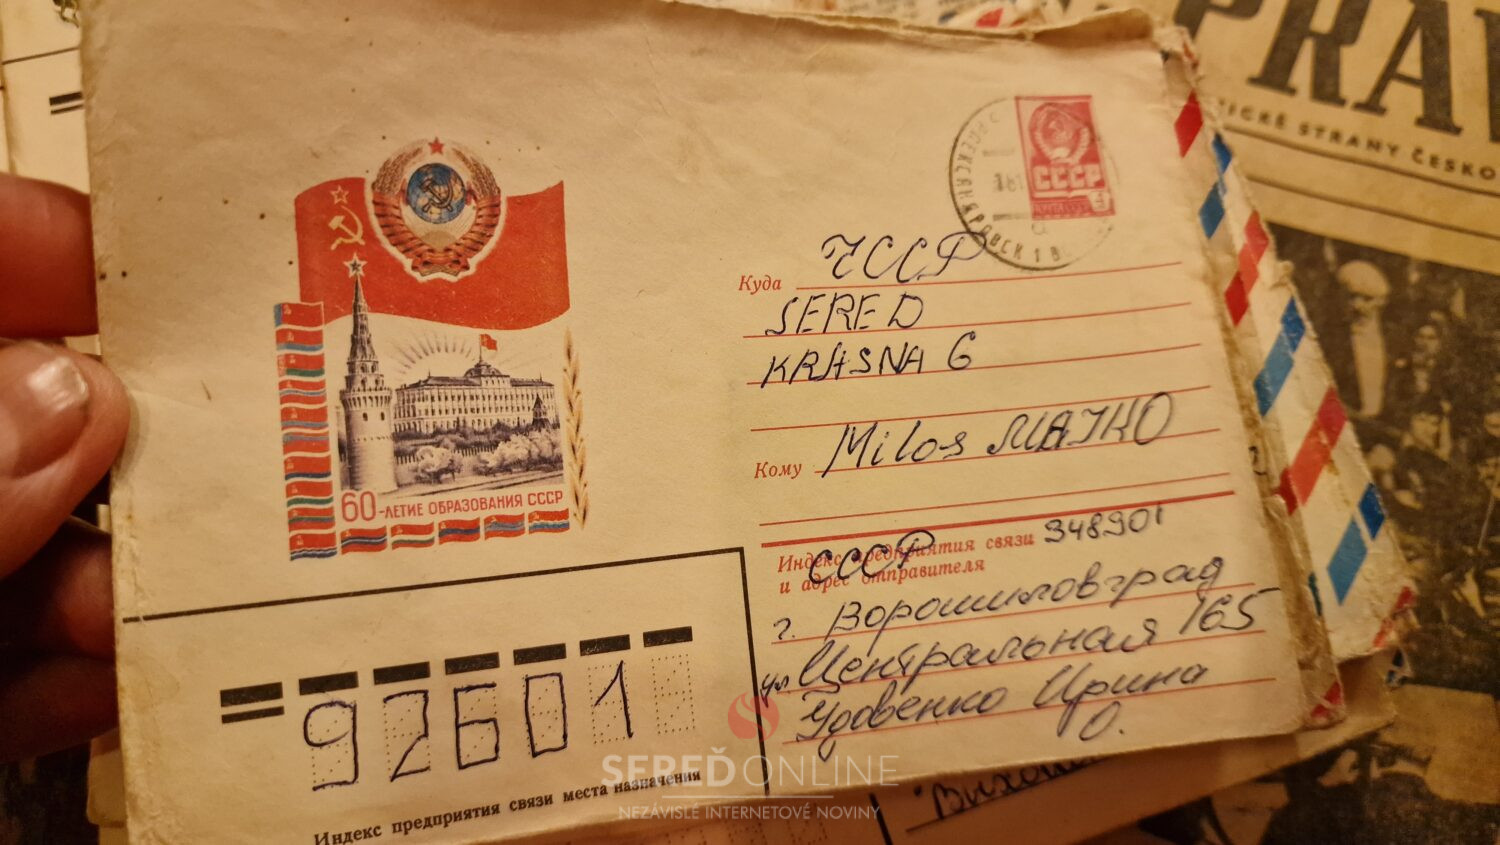 PRAV
ICKÉ STRANY ČESKO
СССР
4
Куда ЧССР
SERED
KRASNA 6
Кому Milos MAJKO
60-ЛЕТИЕ ОБРАЗОВАНИЯ СССР
Индекс предприятия связи 348901
и адрес отправителя
СССР
г. Ворошиловград
ул. Центральная 165
Удовенко Ирина
О.
92601
Индекс предприятия связи места назначения
SEREĎONLINE
NEZÁVISLÉ INTERNETOVÉ NOVINY